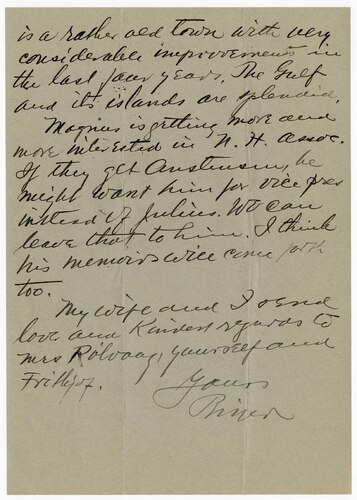 is a rather old town with very
considerable improvements in
the last four years. The Gulf
and its islands are splendid.
Magnus is getting more and
more interested in N. H. Assoc.
If they get Anstensen, he
might want him for vice pres
instead of Julius. We can
leave that to him. I think
his memoirs will come forth
too.
My wife and I send
love and kindest regards to
Mrs Rölvaag, yourself and
Frithjof.
Yours